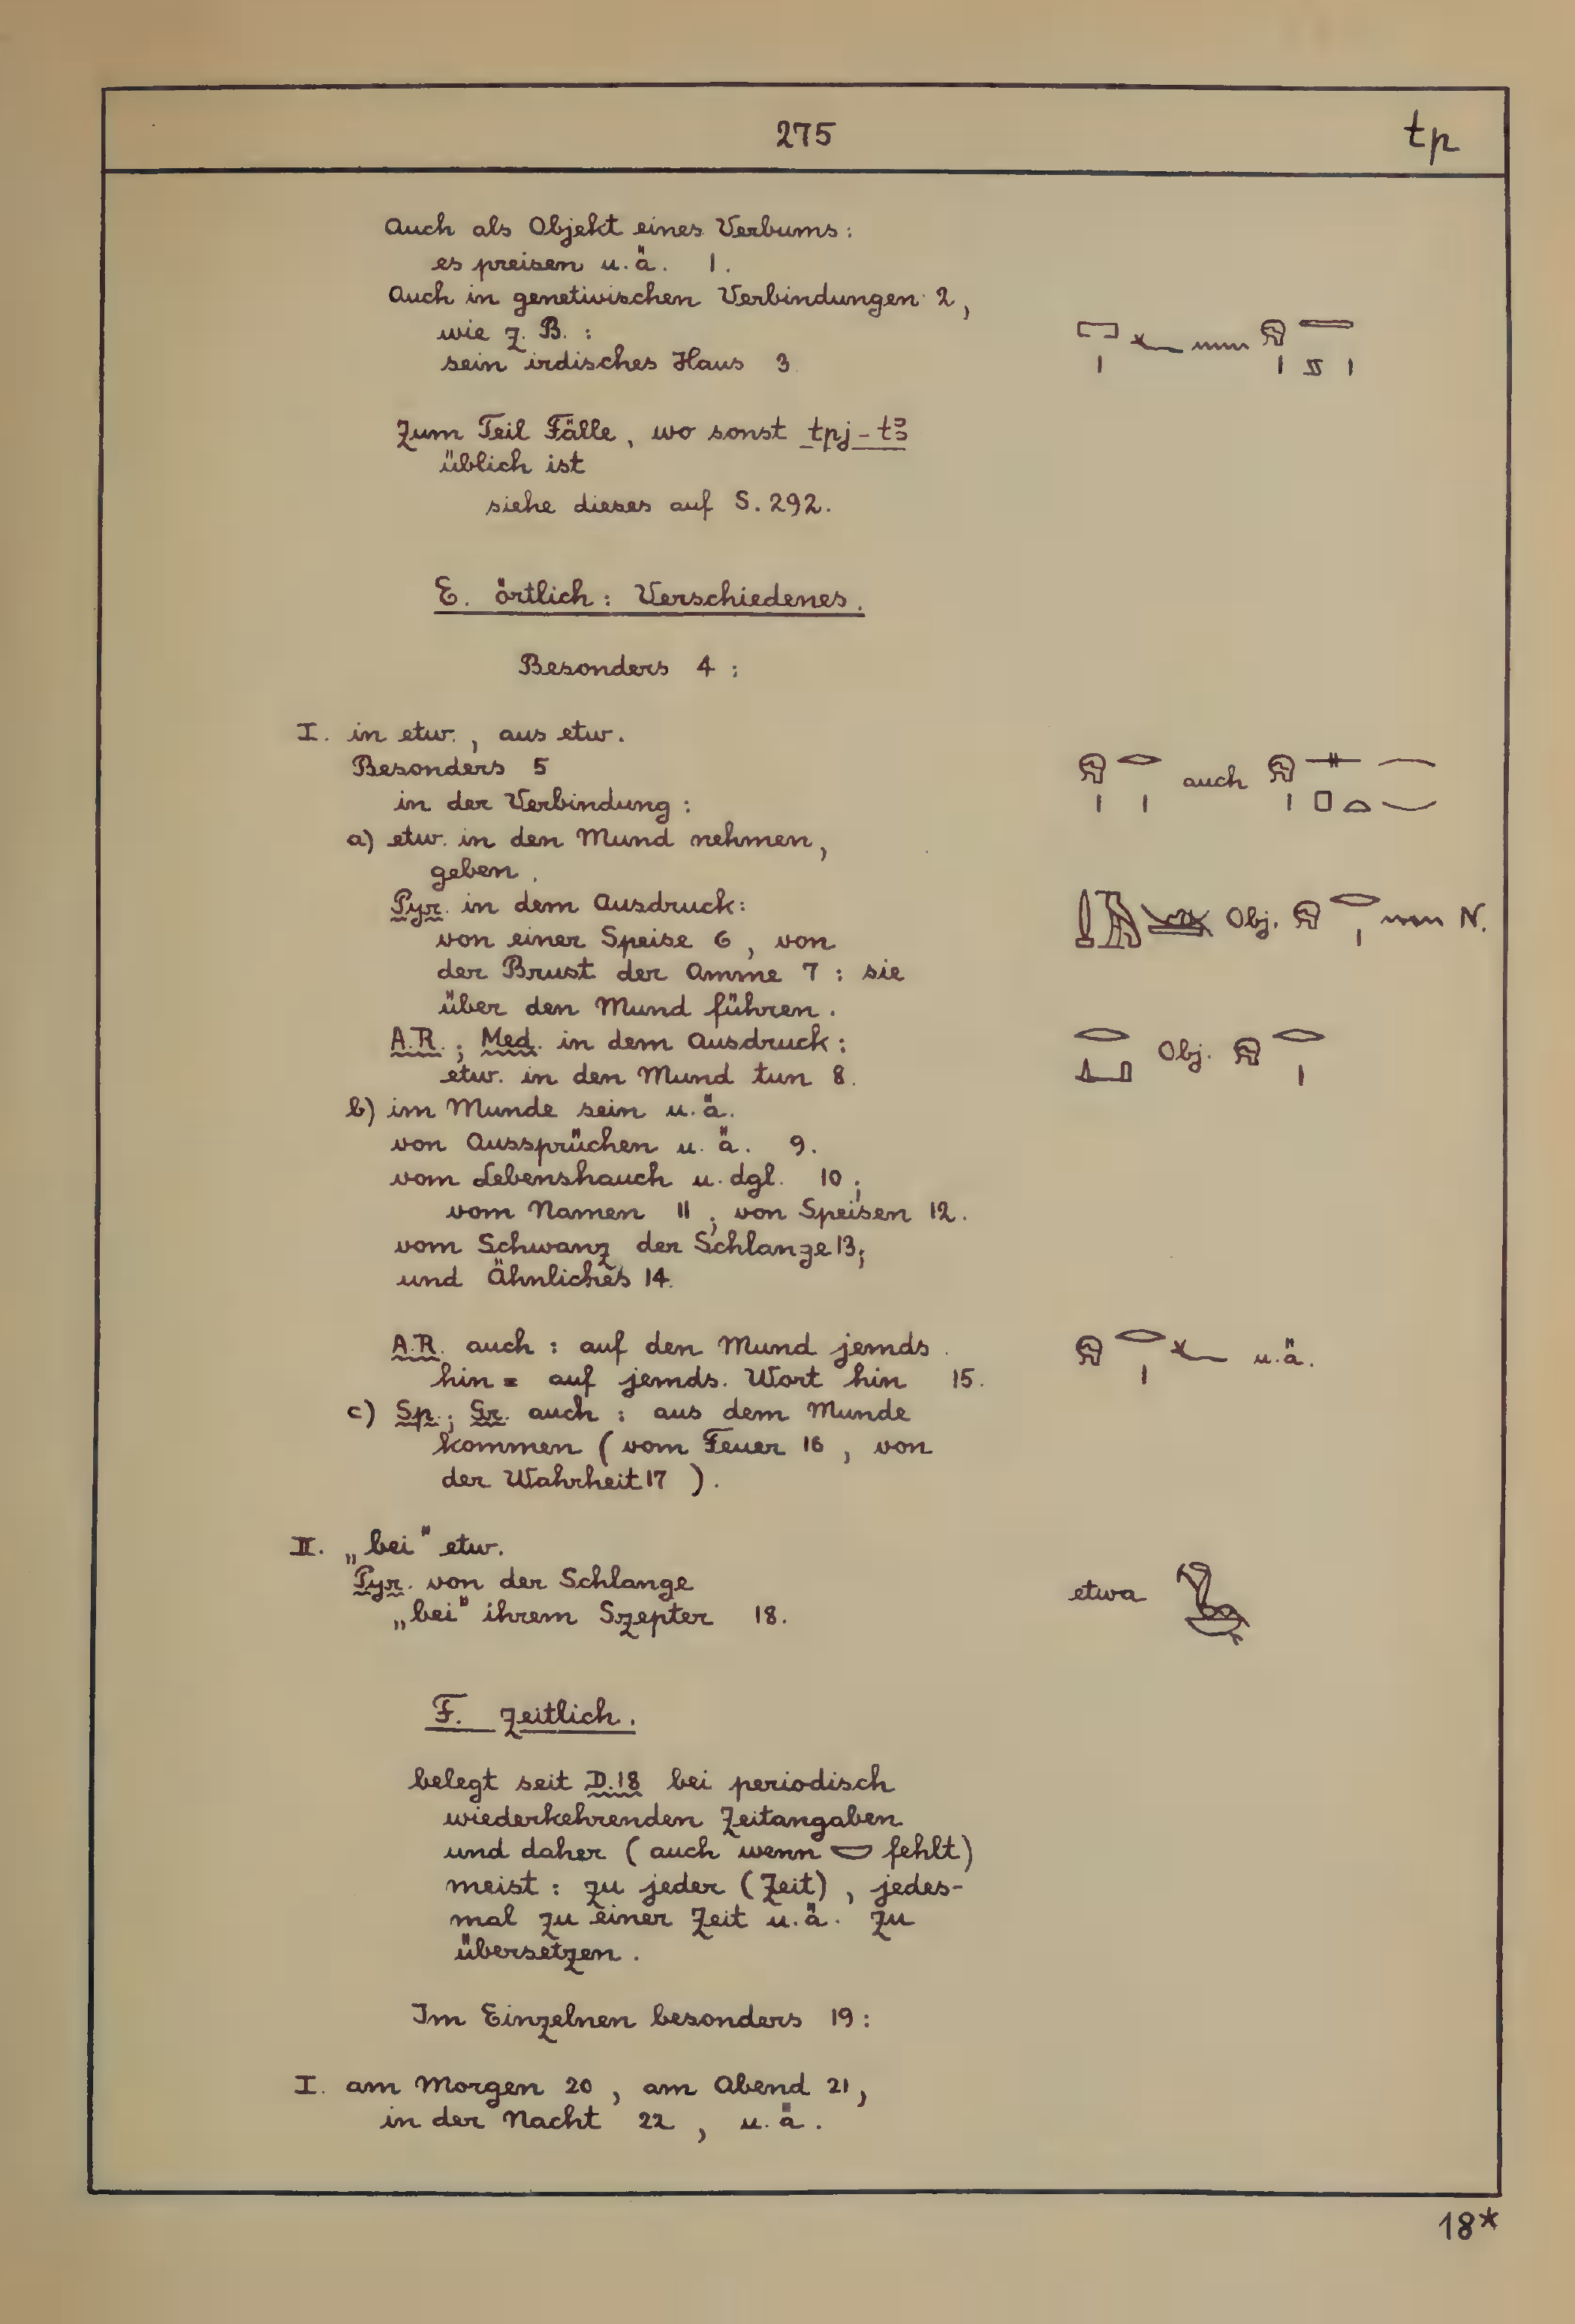 275
tp
Auch als Objekt eines Verbums:
es preisen u. ä. 1.
Auch in genetivischen Verbindungen 2,
wie z. B. :
sein irdisches Haus 3
Zum Teil Fälle, wo sonst tpj-tꜣ
üblich ist
siehe dieses auf S. 292.
E. örtlich: Verschiedenes.
Besonders 4 :
I. in etw., aus etw.
Besonders 5
auch
in der Verbindung :
a) etw. in den Mund nehmen,
geben.
Pyr. in dem Ausdruck:
Obj. N.
von einer Speise 6, von
der Brust der Amme 7 : sie
über den Mund führen.
A.R.; Med. in dem Ausdruck:
Obj.
etw. in den Mund tun 8.
b) im Munde sein u. ä.
von Aussprüchen u. ä. 9.
vom Lebenshauch u. dgl. 10;
vom Namen 11; von Speisen 12.
vom Schwanz der Schlange 13;
und Ähnliches 14.
A.R. auch : auf den Mund jemds.
u. ä.
hin = auf jemds. Wort hin 15.
c) Sp.; Gr. auch : aus dem Munde
kommen (vom Feuer 16, von
der Wahrheit 17 ).
II. „bei" etw.
Pyr. von der Schlange
etwa
„bei" ihrem Szepter 18.
F. Zeitlich.
belegt seit D.18 bei periodisch
wiederkehrenden Zeitangaben
und daher (auch wenn 𓎟 fehlt)
meist : zu jeder (Zeit), jedes-
mal zu einer Zeit u. ä. zu
übersetzen.
Im Einzelnen besonders 19:
I. am Morgen 20, am Abend 21,
in der Nacht 22, u. ä.
18*